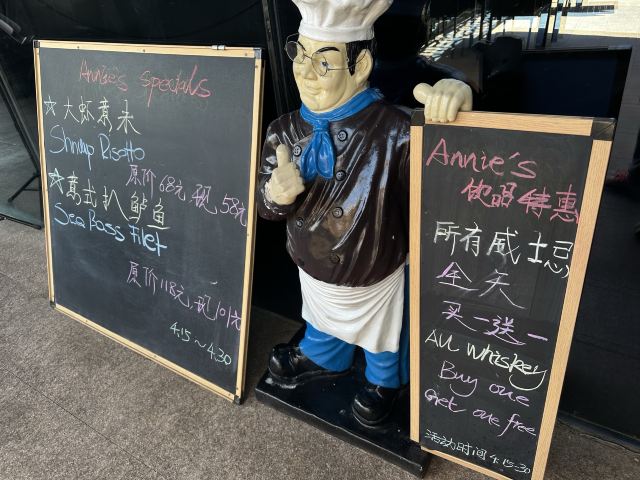 Annie's specials
☆ 大虾薏米
Shrimp Risotto
原价68元, 现58元
☆ 意式扒鲈鱼
Sea Bass Filet
原价118元, 现101元
4.15~4.30
Annie's
饮品特惠
所有威士忌
全天
买一送一
All whiskey
Buy one
Get one free
活动时间 4.15-30